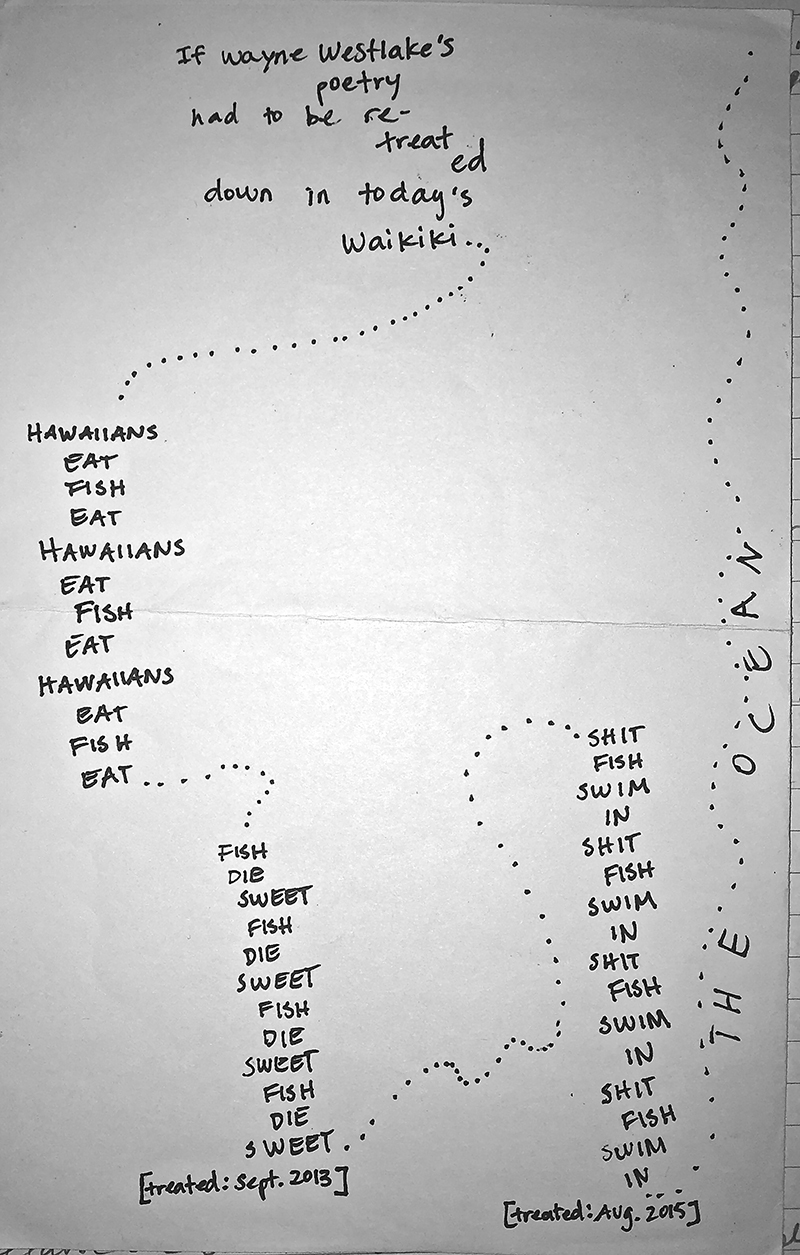 If wayne Westlake's
poetry
had to be re-
treat
ed
down in today's
Waikiki...
HAWAIIANS
EAT
FISH
EAT
HAWAIIANS
EAT
FISH
EAT
HAWAIIANS
EAT
FISH
EAT...
FISH
DIE
SWEET
FISH
DIE
SWEET
FISH
DIE
SWEET
FISH
DIE
SWEET..
[treated: Sept. 2013]
SHIT
FISH
SWIM
IN
SHIT
FISH
SWIM
IN
SHIT
FISH
SWIM
IN
SHIT
FISH
SWIM
IN...
[treated: Aug. 2015]
THE OCEAN